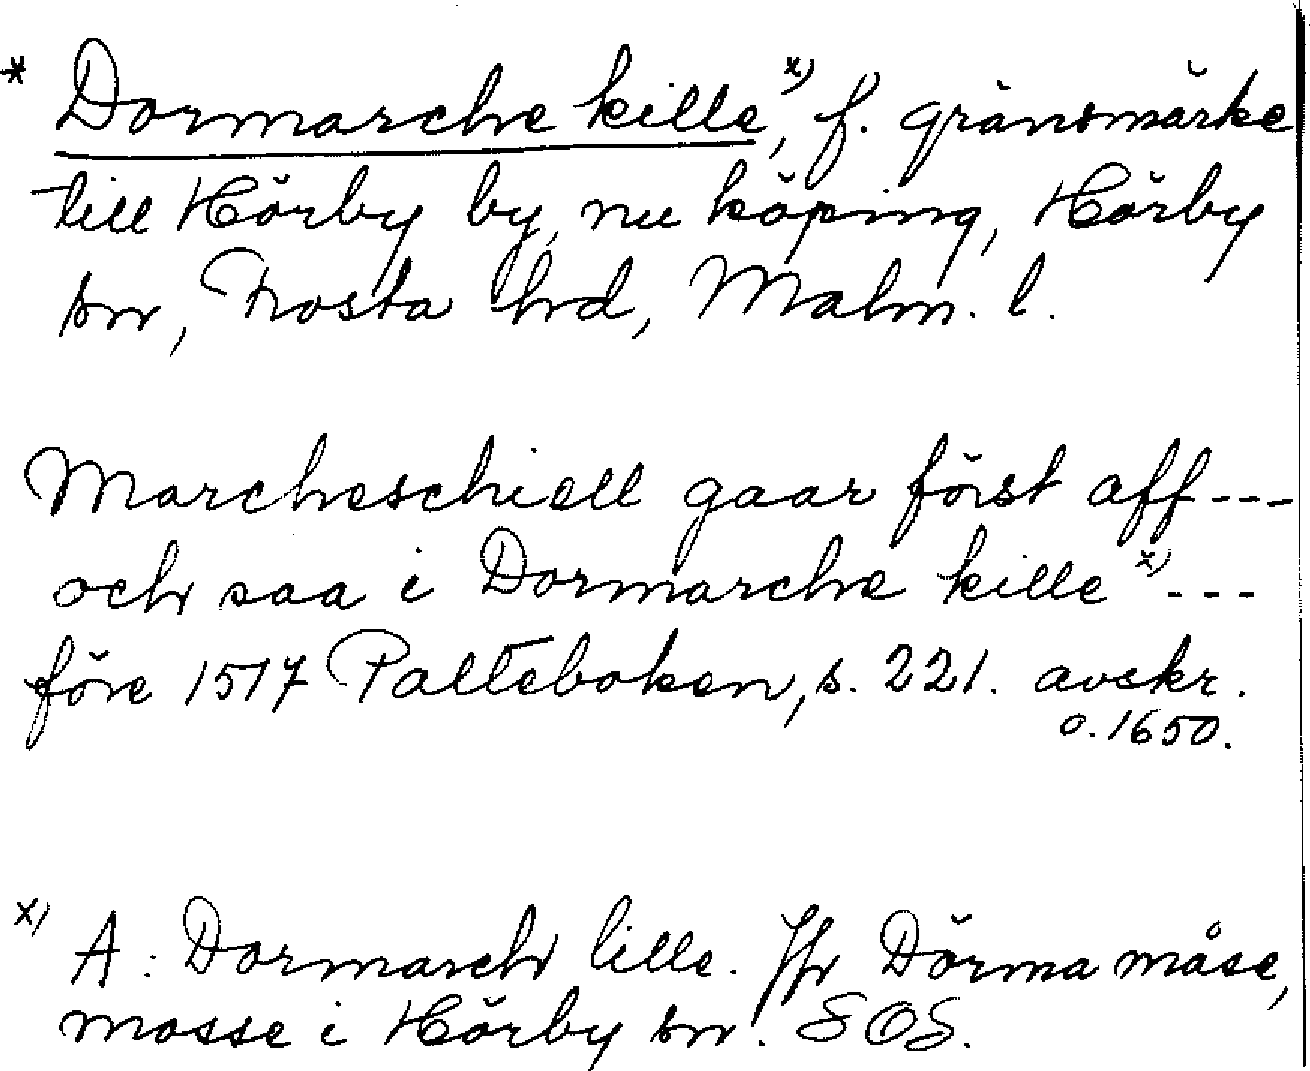 * Dormarche kille,x) f. gränsmärke
till Hörby by, nu köping, Hörby
sn, Frosta hd, Malm. l.
Marcheschiell gaar först aff ---
och saa i Dormarche kille x) ---
före 1517 Palteboken, s. 221. avskr.
o. 1650.
x) A: Dormarch lille. Jfr Dörma måse,
mosse i Hörby sn. SOS.